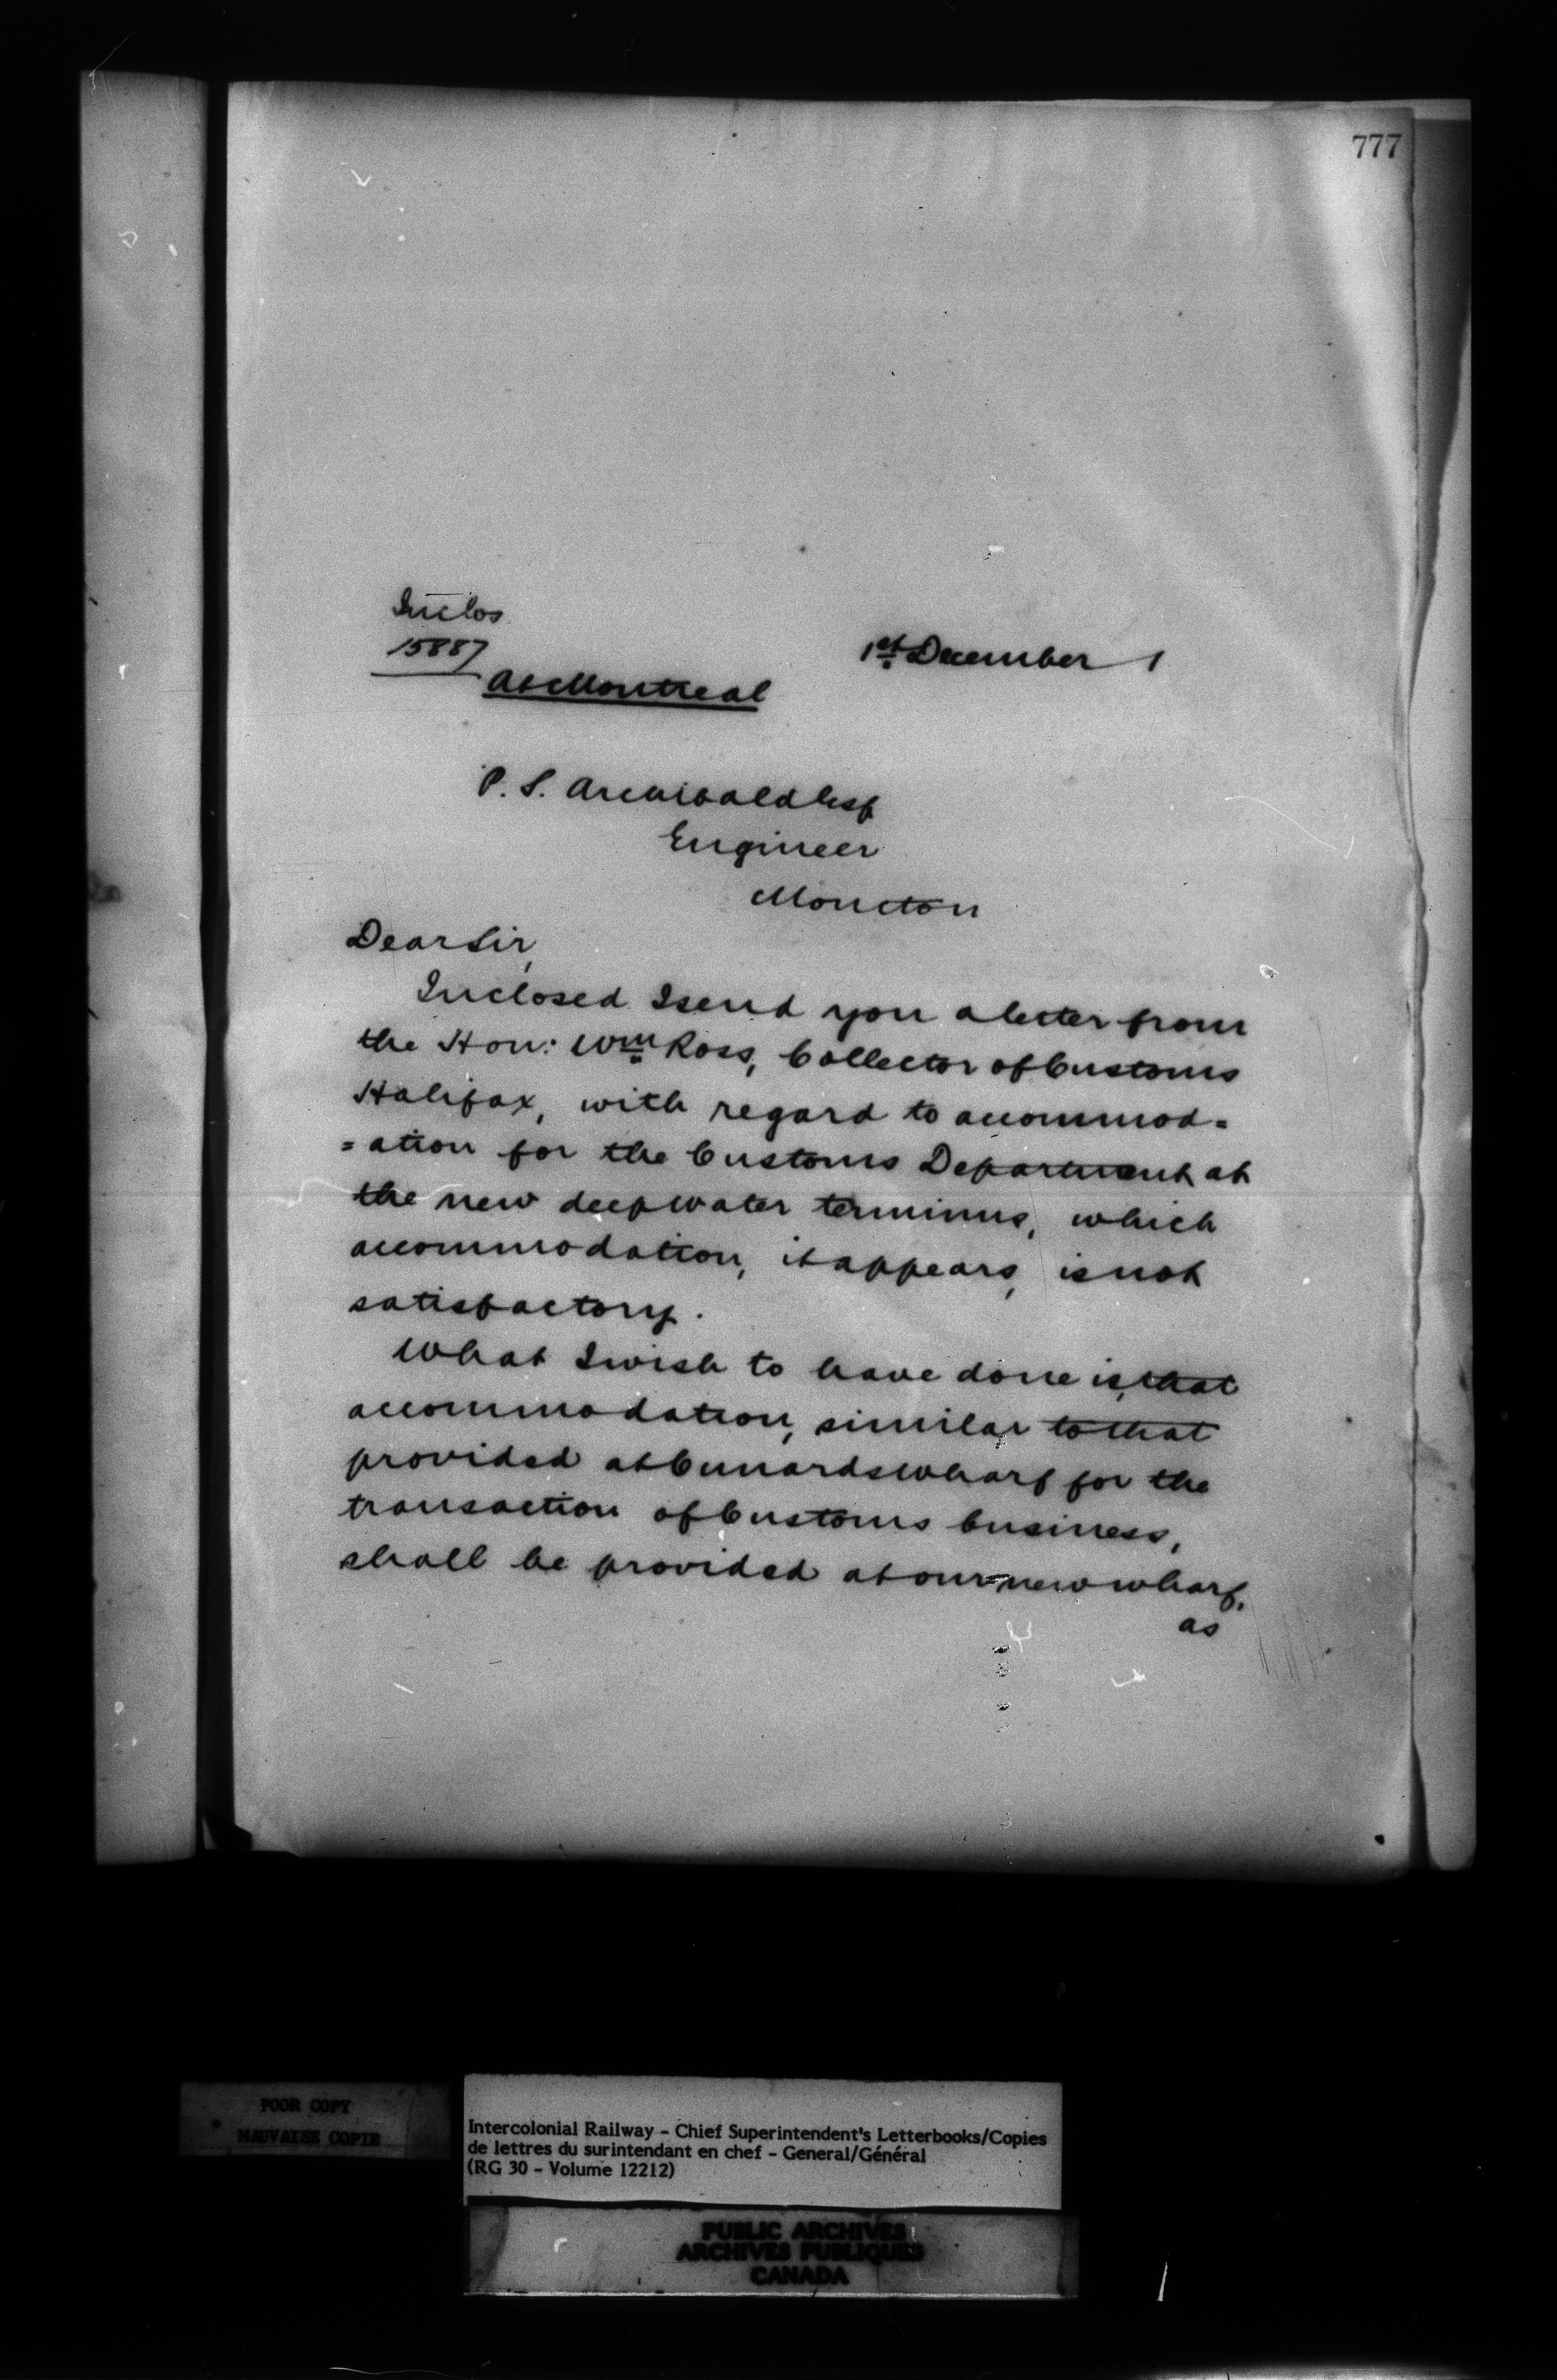 777
Inclos
15887
1st December 1
At Montreal
P. S. Archibald Esq
Engineer
Moncton
Dear Sir,
Inclosed I send you a letter from
the Hon: Wm Ross, Collector of Customs
Halifax, with regard to accommod=
=ation for the Customs Department at
the new deepwater terminus, which
accommodation, it appears, is not
satisfactory.
What I wish to have done is, that
accommodation, similar to that
provided at Cunards wharf for the
transaction of Customs business,
shall be provided at our new wharf,
as
POOR COPY
MAUVAISE COPIE
Intercolonial Railway - Chief Superintendent's Letterbooks/Copies
de lettres du surintendant en chef - General/Général
(RG 30 - Volume 12212)
PUBLIC ARCHIVES
ARCHIVES PUBLIQUES
CANADA